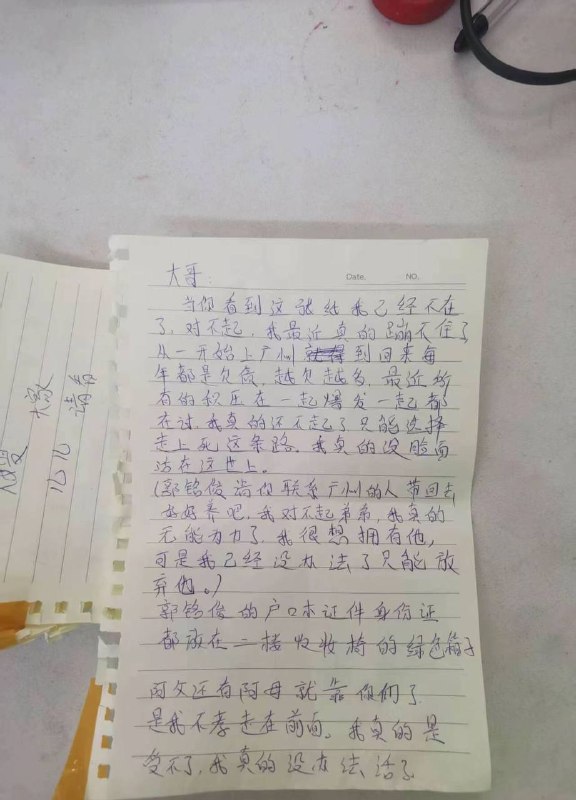 大哥:
Date. NO.
当你看到这张纸我已经不在
了，对不起，我最近真的蹦不住了
从一开始上广州到回来每
年都是欠债，越欠越多，最近所
有的积压在一起爆发一起都
在讨，我真的还不起了只能选择
走上死这条路。我真的没脸面
活在这世上。
(郭铭俊请你联系广州的人带回去
好好养吧，我对不起弟弟，我真的
无能为力了，我很想拥有他，
可是我已经没办法了只能放
弃他。)
郭铭俊的户口本证件身份证
都放在二楼收的绿色箱子
阿父还有阿母就靠你们了
是我不孝走在前面，我真的是
受不了，我真的没办法活了
请看